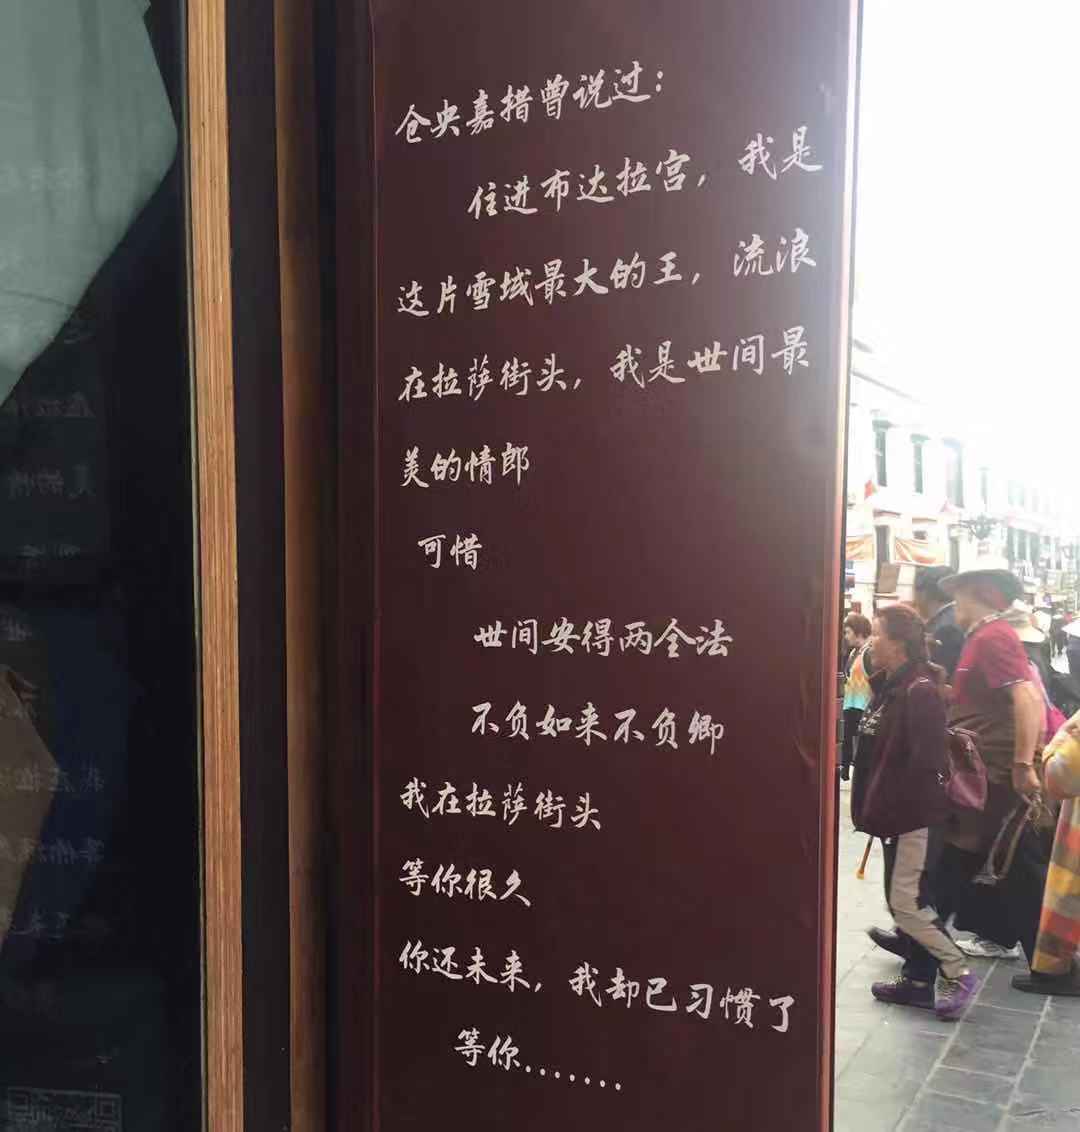 仓央嘉措曾说过：
住进布达拉宫，我是
这片雪域最大的王，流浪
在拉萨街头，我是世间最
美的情郎
可惜
世间安得两全法
不负如来不负卿
我在拉萨街头
等你很久
你还未来，我却已习惯了
等你.......